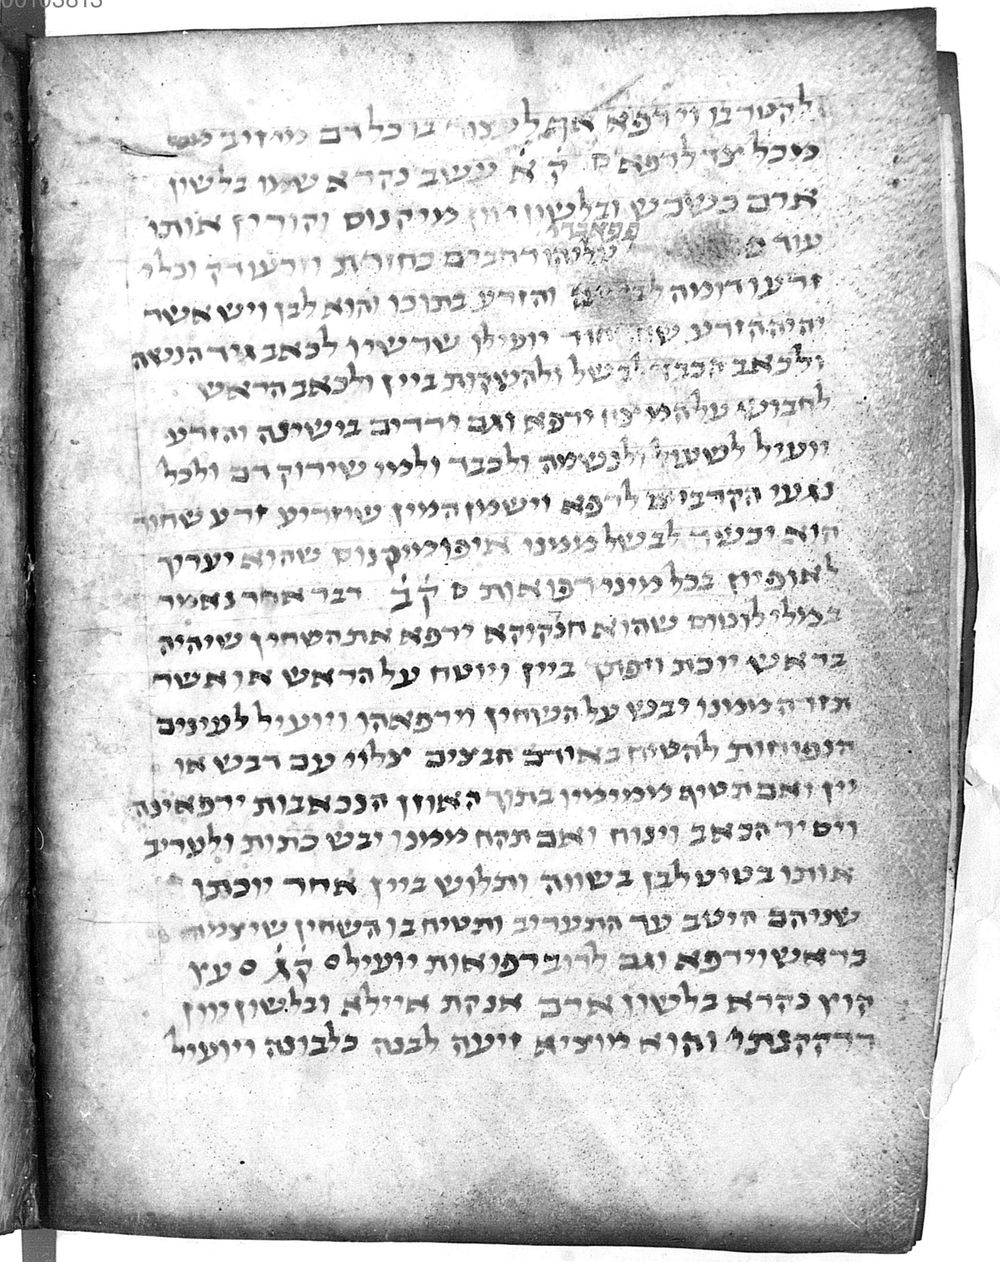 00103813
להקטר בו וירפא אף לעצור בו כל דם מיזיב
מכל יצד לרפא ס ק̇ א̇ עשב נקרא שמו בלשון
ארם כשכש ובלשון יוון מיקנוס והורין אותו
פפאברי
עוד עליהו רחבים כחזרת וירעורק וכלי
זרעו דומה והזרע בתוכו והוא לבן ויש אשר
יהיה הזרע יועילו שרשיו לכאב גיד הנשה
ולכאב הכבד לבשל ולהשקות ביין ולכאב הראש
לחבוש על המיצח ירפא וגם ירדים בישינה והזרע
יועיל לשעול ולנשמה ולכבד ולמי שירוק דם ולכל
נגעי הקרבים לרפא וישמן המין שיזריע זרע שחור
הוא יכשר לבשל ממנו איפומיקנוס שהוא יערוך
לאופיון בכל מיני רפואות ס ק̇ב̇ דבר אחר נאמר
במלילוטוס שהוא חנקוקא ירפא את השחין שיהיה
בראש יוכת ויפותך ביין ויוטח על הראש או אשר
תזרה ממנו יבש על השחין וירפאהו ויועיל לעינים
הנפוחות להטיח באודם חבצים יצלוי עם דבש או
יין ואם תטיף ממימיו בתוך האוזן הנכאבות ירפאינה
ויסיר הכאב וינוח ואם תקח ממנו יבש כתות ולעריב
אותו בטיט לבן בשווה ותלוש ביין אחר יוכתו
שניהם היטב עד התעריב ותטיח בו השחין שיצמיח
בראש וירפא וגם לרוב רפואות יועיל ס ק̇ג̇ ס עץ
קוץ נקרא בלשון ארם אנקת איילא ובלשון יוון
דרקקנתי והוא מוציא זיעה לבנה כלבונה ויועיל